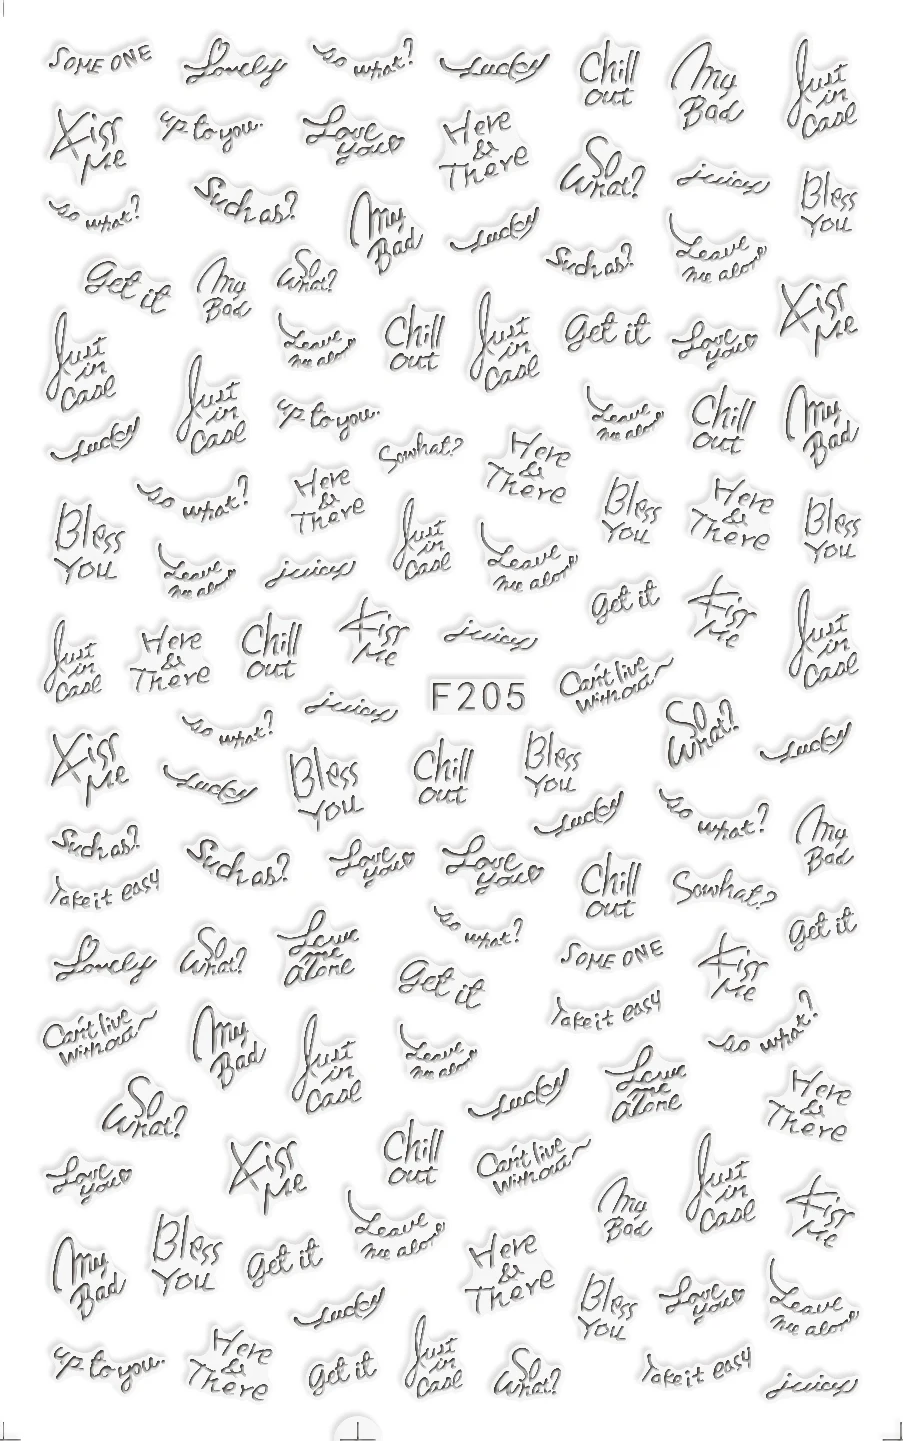 SOME ONE
Lovely
so what?
Lucky
Chill
out
My
Bad
Just
in
Case
Kiss
Me
up to you.
Love
you
Here
&
There
So
What?
juicy
Bless
You
so what?
Such as?
My
Bad
Lucky
Such as?
Leave
me alone
Get it
My
Bad
So
What?
Kiss
Me
Just
in
Case
Leave
me alone
Chill
out
Just
in
Case
Get it
Love
you
Just
in
Case
up to you.
Leave
me alone
Chill
out
My
Bad
Lucky
So what?
Here
&
There
Bless
You
so what?
Here
&
There
Just
in
Case
Bless
You
Here
&
There
Bless
You
Leave
me alone
juicy
Leave
me alone
get it
Kiss
Me
Just
in
Case
Just
in
Case
Here
&
There
Chill
out
Kiss
Me
juicy
Can't live
without
juicy
F205
so what?
So
What?
Lucky
Kiss
Me
Lucky
Bless
You
Chill
out
Bless
You
Lucky
so what?
My
Bad
Such as?
Such as?
Love
you
Love
you
Chill
out
So what?
Take it easy
get it
Lovely
So
What?
Leave
me
alone
so what?
Get it
SOME ONE
Kiss
Me
Can't live
without
My
Bad
Just
in
Case
Leave
me alone
Take it easy
so what?
So
What?
Lucky
Leave
me
alone
Here
&
There
Love
you
Kiss
Me
Chill
out
Can't live
without
My
Bad
Just
in
Case
Kiss
Me
My
Bad
Bless
You
get it
Leave
me alone
Here
&
There
Bless
You
Love
you
Leave
me alone
Lucky
up to you.
Here
&
There
get it
Just
in
Case
So
What?
Take it easy
juicy